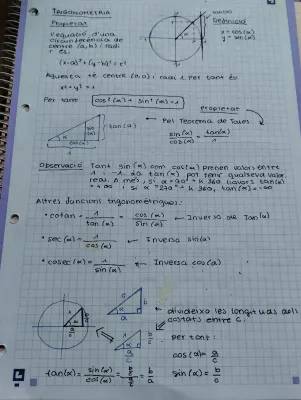 TRIGONOMETRIA
Propietat
Definició
L'equació d'una
x = cos(α)
circumferència de
y = sin(α)
centre (a,b) i radi
r és:
(x-a)²+(y-b)²=r²
Aquesta té centre (0,0) i radi 1. Per tant és
x²+y²=1
Per tant
cos²(α) + sin²(α) = 1
Propietat
tan(α)
Pel Teorema de Tales
sin(α)/cos(α) = tan(α)/1
Observació Tant sin(α) com cos(α) prenen valors entre
1 i -1. La tan(α) pot tenir qualsevol valor
real. A més, si α=90°+k·360 llavors tan(α)
=+∞ i si α=270°+k·360, tan(α)=-∞
Altres funcions trigonomètriques:
• cotan = 1/tan(α) = cos(α)/sin(α) ← Inversa de Tan(α)
• sec(α) = 1/cos(α) ← Inversa sin(α)
• cosec(α) = 1/sin(α) ← Inversa cos(α)
c b
α
a
← divideixo les longituds dels
costats entre c.
per tant:
cos(α) = a/c
tan(α) = sin(α)/cos(α) = = b/a
sin(α) = b/c